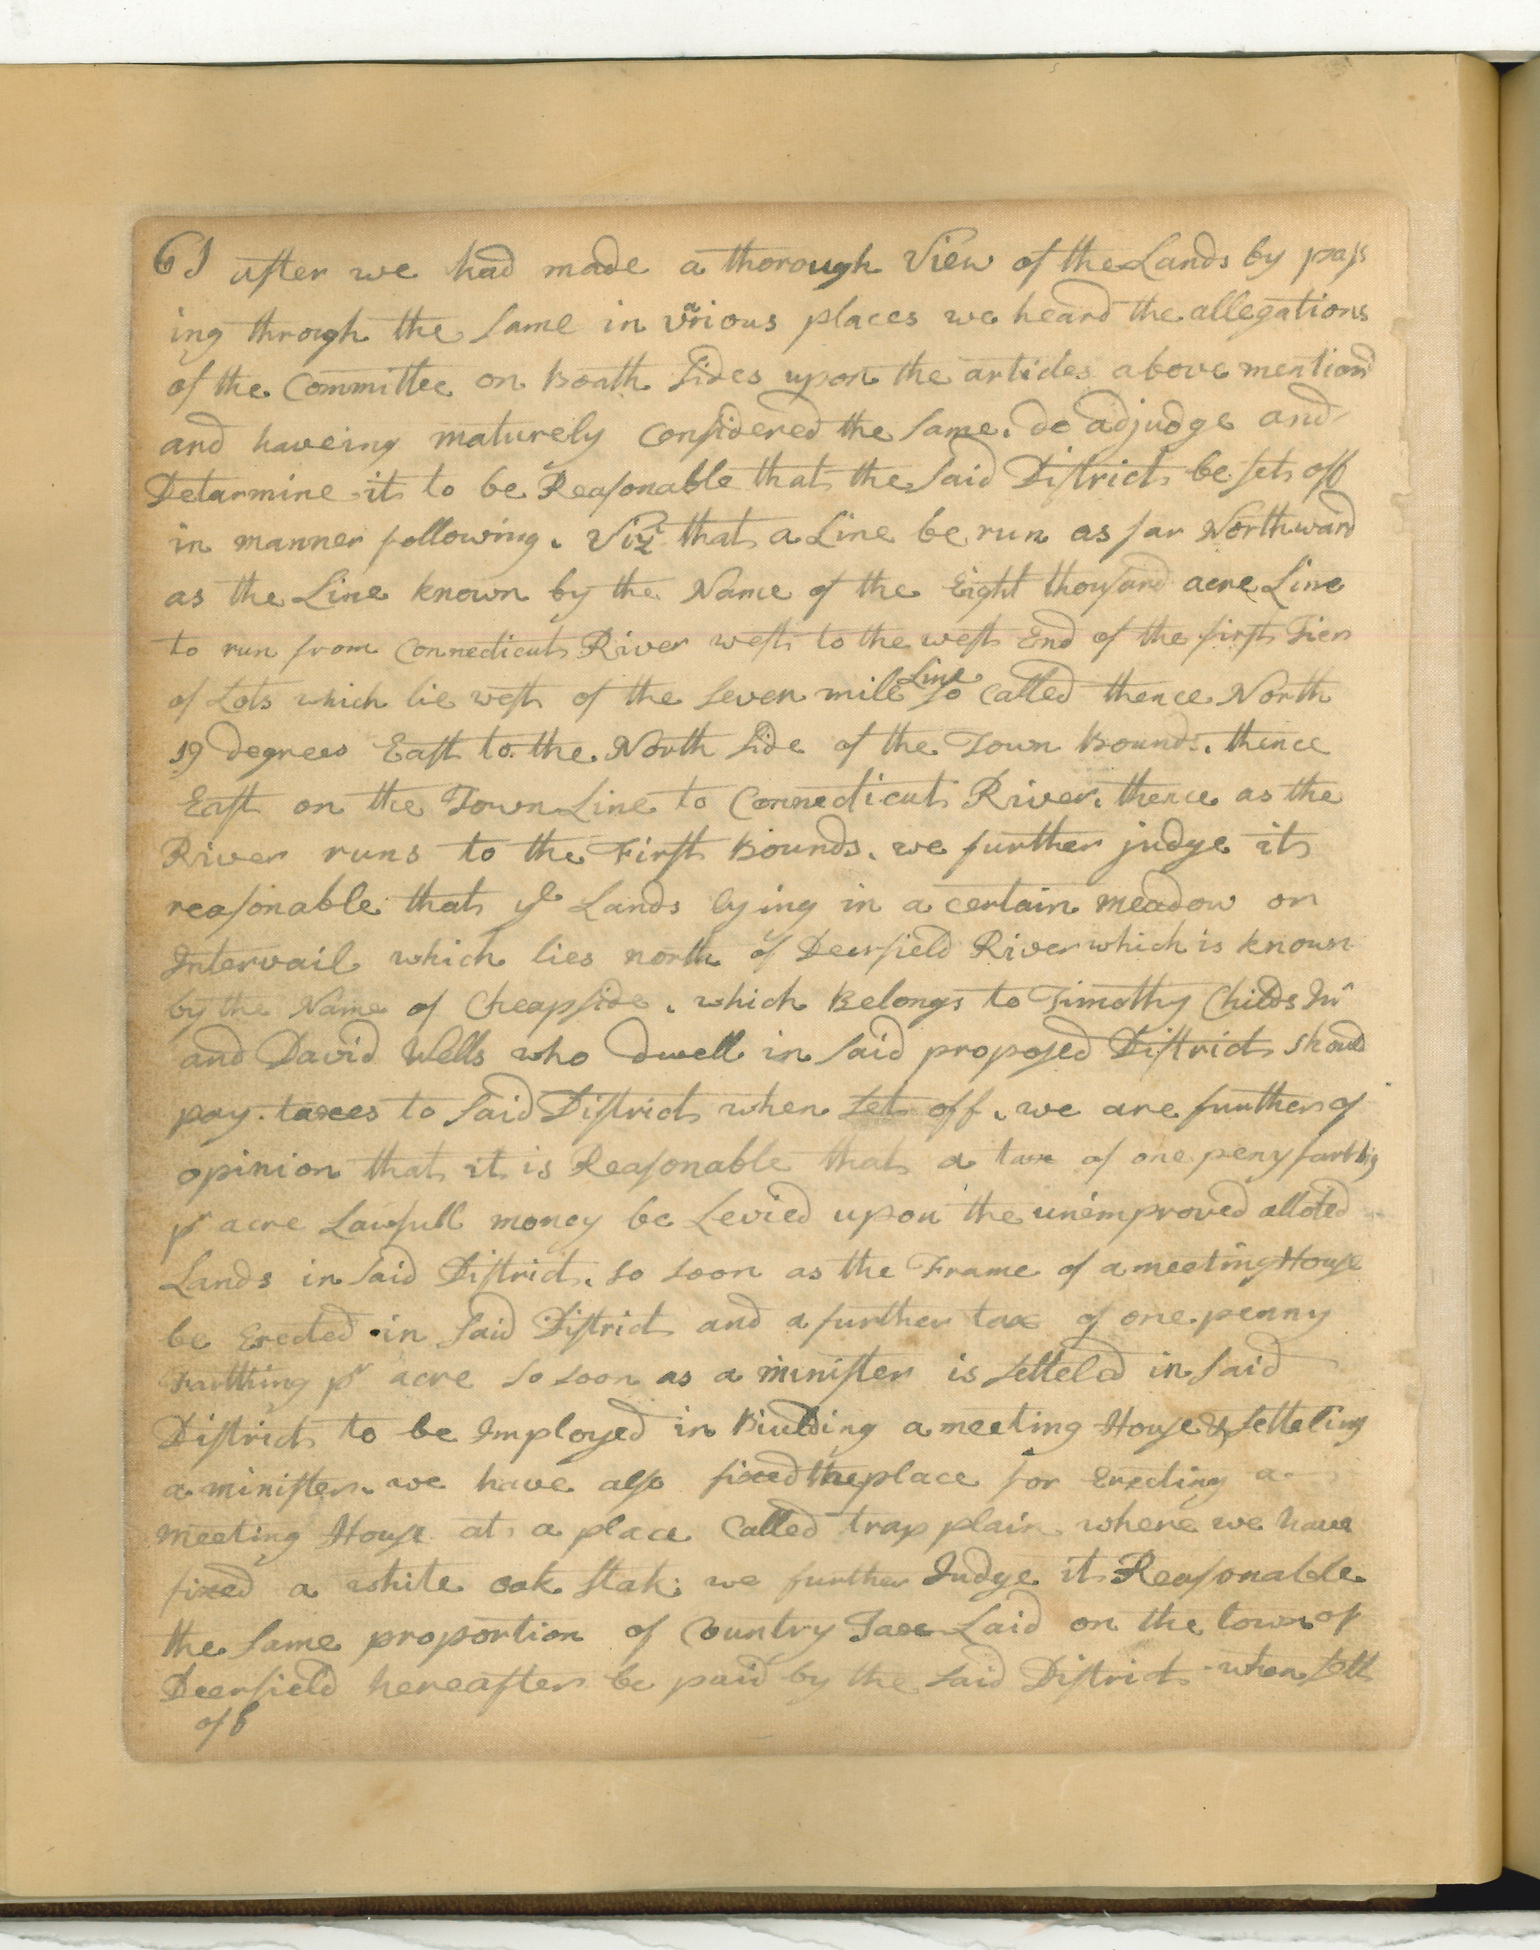 6) after we had made a thorough View of the Lands by pass
ing through the same in various places we heard the allegations
of the Committee on Boath Sides upon the articles above mentiond
and haveing maturely Considered the same. do adjudge and
Detarmine it to be Reasonable that the said District be sett off
in manner following. Vizt that a Line be run as far Northward
as the Line known by the Name of the Eight thousand acre Line
to run from Connecticut River west to the west End of the first Tier
of Lots which lie west of the seven mile Line so called thence North
19 degrees East to the North Side of the Town Bounds. thence
East on the Town Line to Connecticut River. thence as the
River runs to the First Bounds. we further judge it
reasonable that ye Lands lying in a certain meadow or
Intervail which lies north of Deerfield River which is known
by the Name of Cheapside. which Belongs to Timothy Childs Junr
and David Wells who dwell in said proposed District should
pay taxes to said District when set off. we are further of
opinion that it is Reasonable that a tax of one peny farthig
pr acre Lawfull money be Levied upon the unimproved alloted
Lands in said District. so soon as the Frame of a meeting House
be Erected in said District and a further tax of one penny
Farthing pr acre so soon as a minister is setteled in said
District to be Imployed in Biulding a meeting House & setteling
a minister. we have also fixed the place for Erecting a
meeting House at a place Called trap plain where we have
fixed a white oak Stak: we further Judge it Reasonable
the same proportion of Country Tax Laid on the town of
Deerfield hereafter be paid by the said District when sett
off